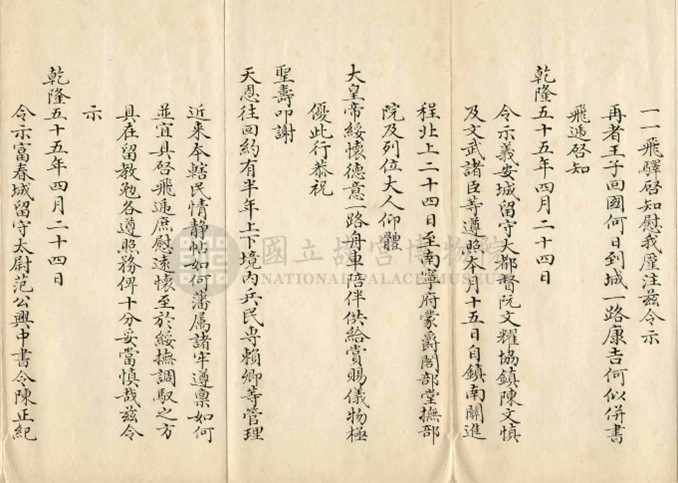 一一飛驛啓知慰我廑注茲令示
再者王子回國何日到城一路康吉何似併書
飛遞啓知
乾隆五十五年四月二十四日
令示義安城留守大都督阮文耀協鎮陳文慎
及文武諸臣等遵照本月十五日自鎮南關進
程北上二十四日至南寧府蒙爵閣部堂撫部
院及列位大人仰體
大皇帝綏懷德意一路舟車陪伴供給賞賜儀物極
優此行恭祝
聖壽叩謝
天恩往回約有半年上下境內兵民專賴卿等管理
近來本轄民情靜帖如何藩屬諸牢遵稟如何
並宜具啓飛遞庶慰遠懷至於綏撫調馭之方
具在留教勉各遵照務俾十分妥當慎哉茲令
示
乾隆五十五年四月二十四日
令示富春城留守太尉范公興中書令陳正紀
國立故宮博物院
NATIONAL PALACE MUSEUM